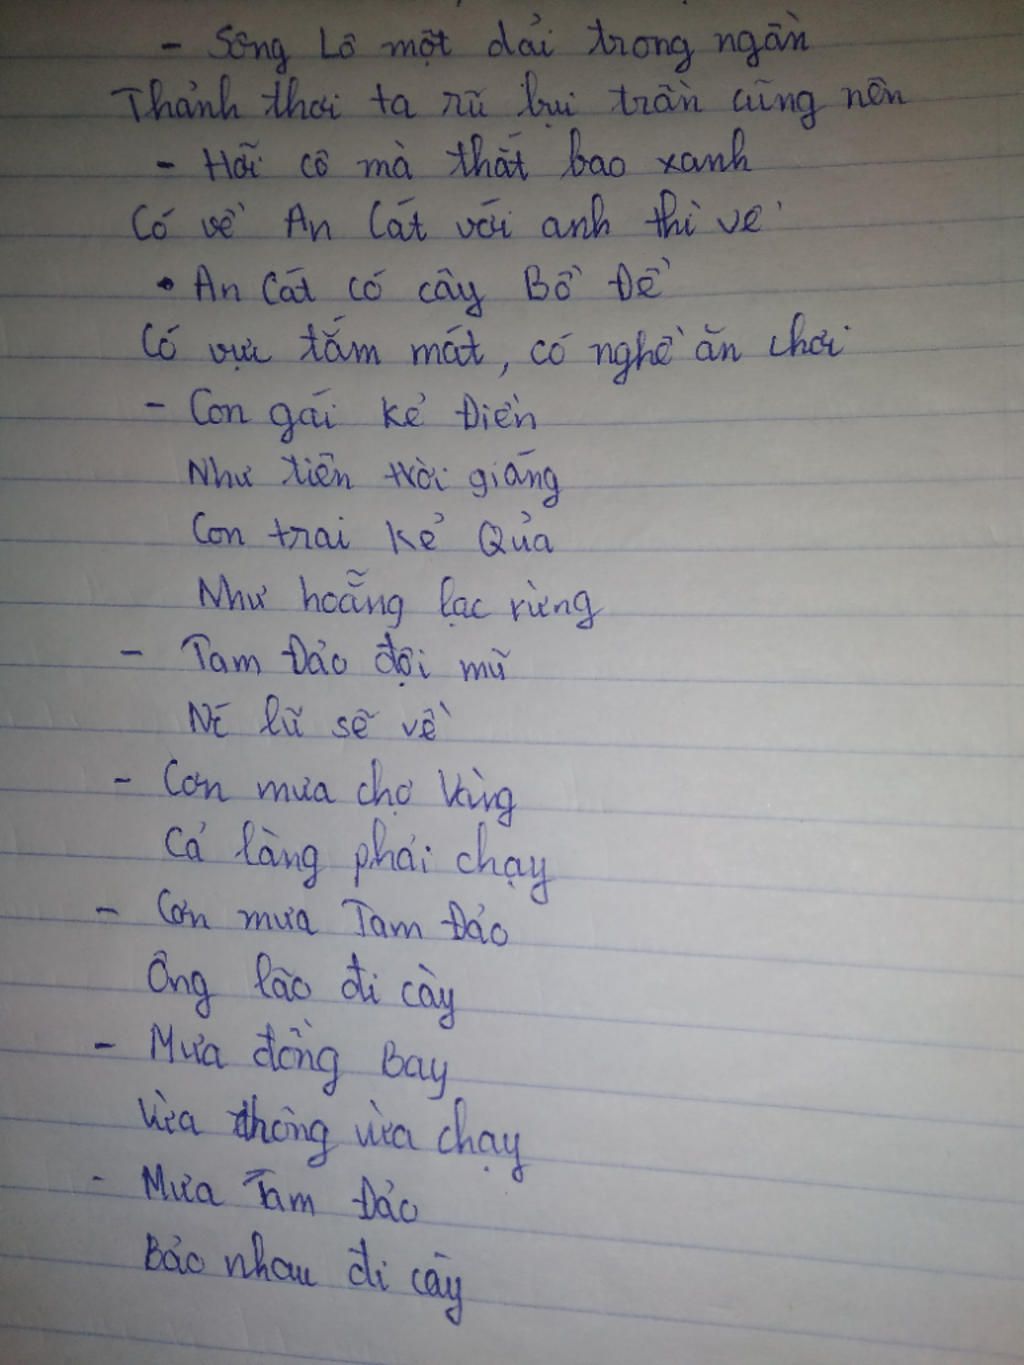 - Sông Lô một dải trong ngần
Thảnh thơi ta rũ bụi trần cũng nên
- Hỡi cô mà thắt bao xanh
Có về An Cát với anh thì về
• An Cát có cây Bồ Đề
Có vực tắm mát, có nghề ăn chơi
- Con gái Kẻ Điền
Như tiên trời giáng
Con trai Kẻ Qủa
Như hoẵng lạc rừng
- Tam Đảo đội mũ
Nĩ lũ sẽ về
- Cơn mưa chợ Vàng
Cả làng phải chạy
- Cơn mưa Tam Đảo
Ông lão đi cày
- Mưa đồng Bay
Vừa thông vừa chạy
- Mưa Tam Đảo
Bảo nhau đi cày